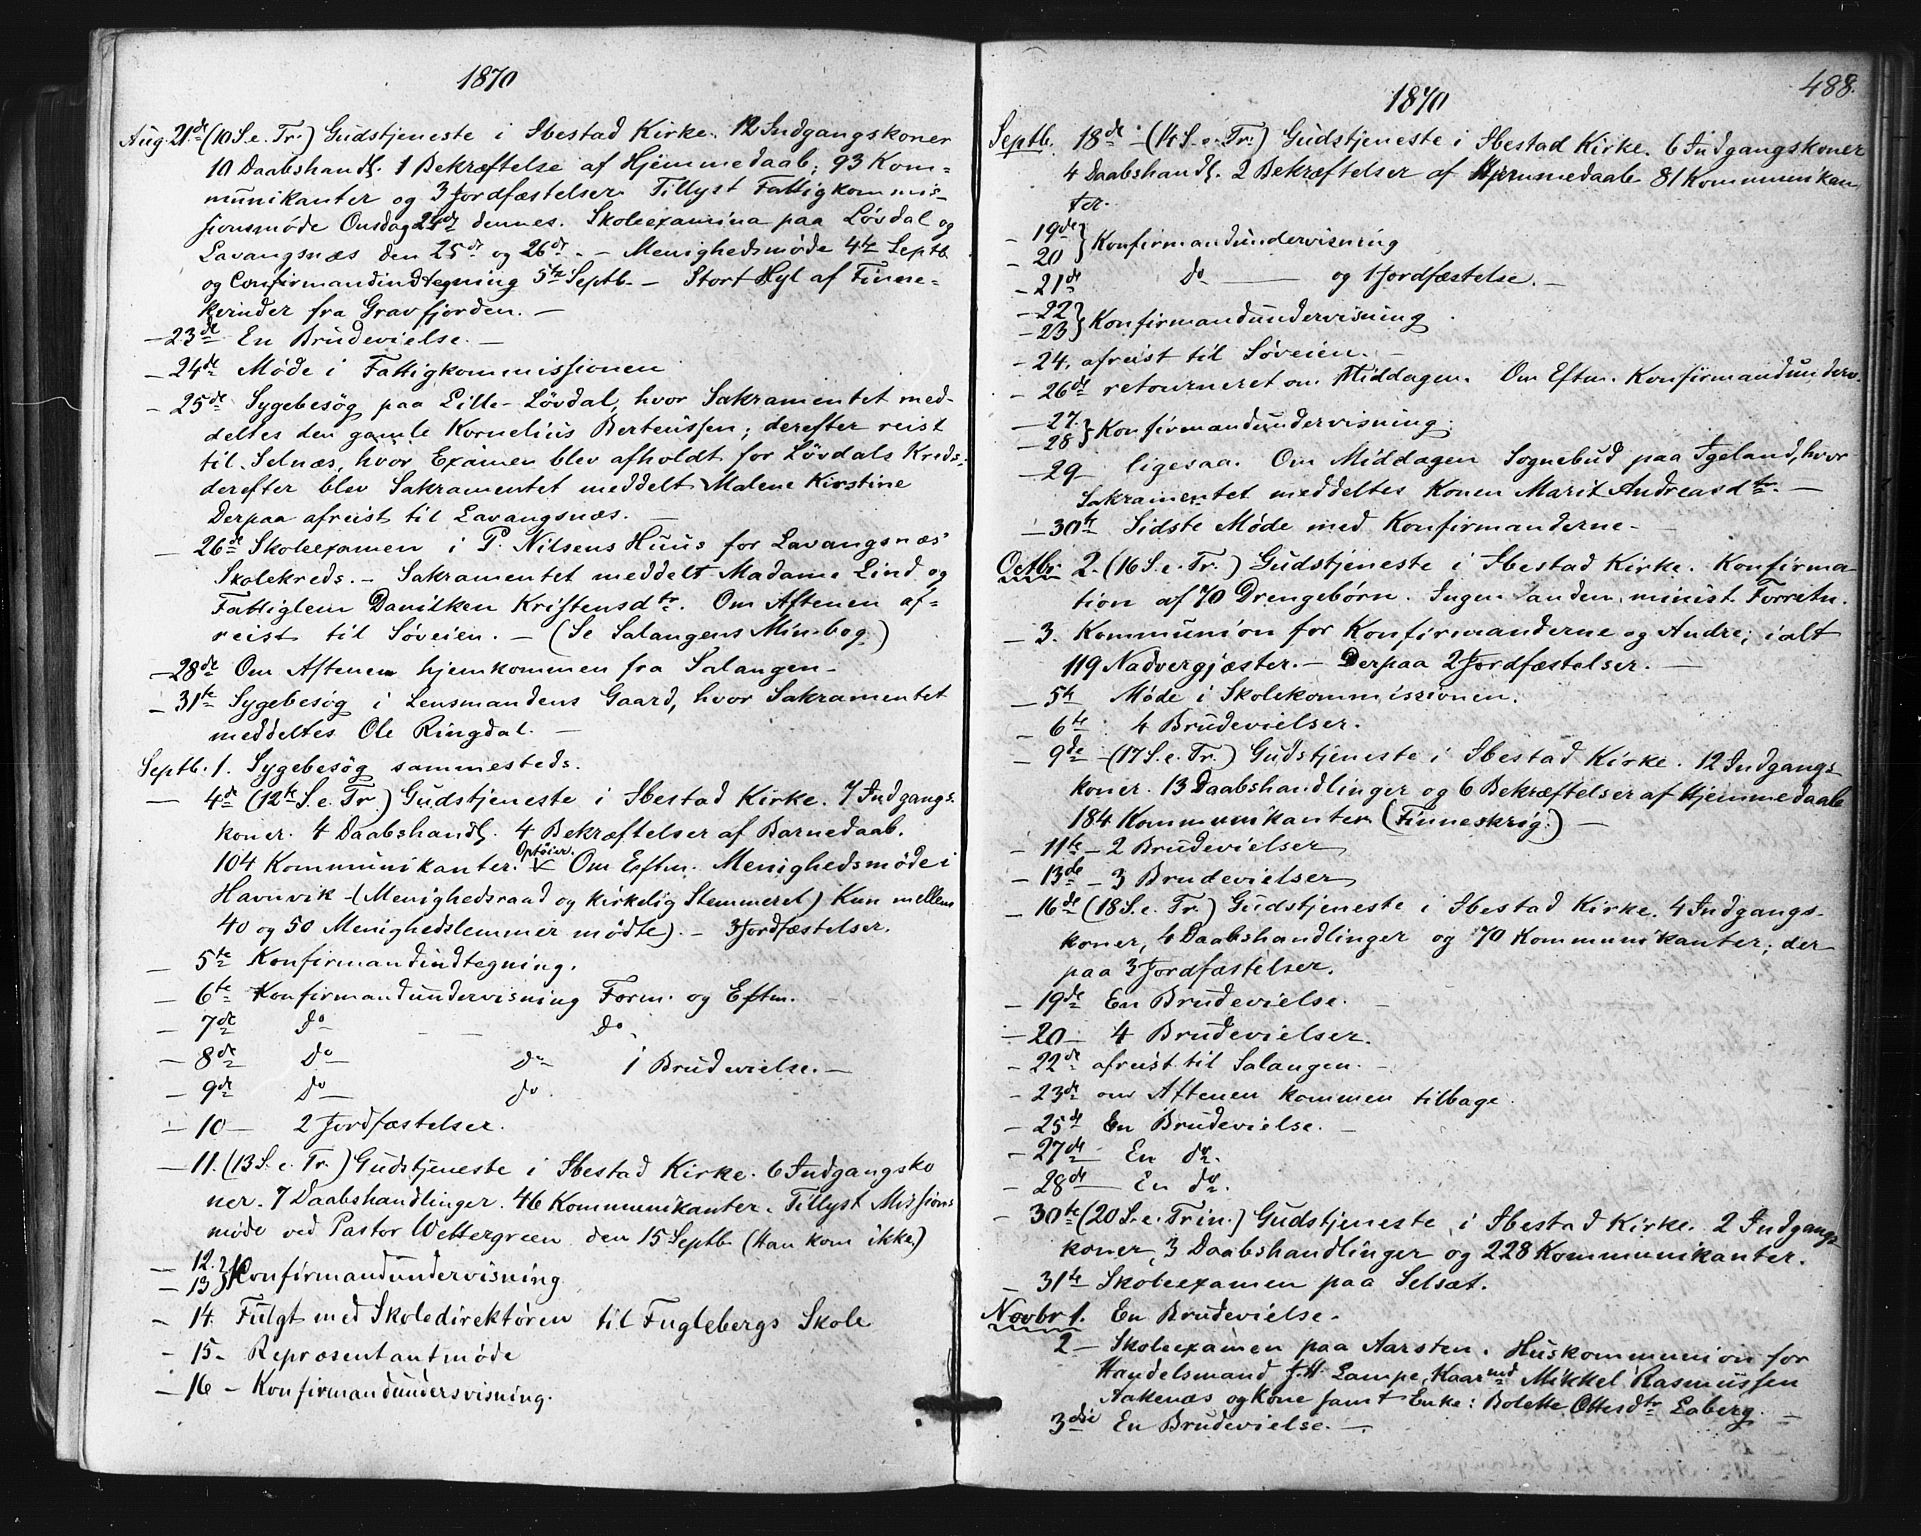 1870
Aug. 21de (10 S. e. Tr.) Gudstjeneste i Ibestad Kirke. 12 Indgangskoner
10 Daabshandl. 1 Bekræftelse af Hjemmedaab; 93 Kom=
munikanter og 3 Jordfæstelser. Tillyst Fattigkommis=
sionsmøde Onsdag 24de dennes. Skoleexamina paa Løvdal og
Lavangsnæs den 25de og 26de. – Menighedsmøde 4de Septb.
og Confirmandindtegning 5te Septb. – Stort Hyl af Finne=
kvinder fra Gravfjorden. –
– 23de En Brudevielse. –
– 24de Møde i Fattigkommissionen
– 25de Sygebesøg paa Lille-Løvdal, hvor Sakramentet med-
deltes den gamle Kornelius Berteussen; derefter reist
til Selnæs, hvor Examen blev afholdt for Løvdals Kreds;
derefter blev Sakramentet meddelt Malene Kirstine
Derpaa afreist til Lavangsnæs. –
– 26de Skoleexamen i P. Nilsens Huus for Lavangsnæs'
Skolekreds. – Sakramentet meddelt Madame Lind og
Fattiglem Danilken Kristensdtr. Om Aftenen af=
reist til Søveien. – (Se Salangens Min.bog.)
– 28de Om Aftenen hjemkommen fra Salangen –
– 31te Sygebesøg i Lensmandens Gaard, hvor Sakramentet
meddeltes Ole Ringdal. –
Septb. 1. Sygebesøg sammesteds.
– 4de (12te S. e. Tr.) Gudstjeneste i Ibestad Kirke. 7 Indgangs-
koner. 4 Daabshandl. 4 Bekræftelser af Barnedaab.
Optøier.
104 Kommunikanter. Om Eftm. Menighedsmøde i
Havnvik – (Menighedsraad og kirkelig Stemmeret) Kun mellem
40 og 50 Menighedslemmer mødte). – 3 Jordfæstelser.
– 5te Konfirmandindtegning.
– 6te Konfirmandundervisning Form. og Eftm.
– 7de do – – do
– 8de do – do 1 Brudevielse. –
– 9de do – do.
– 10 – 2 Jordfæstelser.
– 11. (13 S. e. Tr.) Gudstjeneste i Ibestad Kirke. 6 Indgangsko
ner. 7 Daabshandlinger. 46 Kommunikanter. Tillyst Missions
møde ved Pastor Wettergreen den 15 Septb. (Han kom ikke)
– 12. }
– 13 } Konfirmandundervisning
– 14. Fulgt med Skoledirektøren til Fuglebergs Skole
– 15 – Repræsentantmøde
– 16 – Konfirmandundersvisning.
488.
1870
Septb. 18de – (14 S. e. Tr.) Gudstjeneste i Ibestad Kirke. 6 Indgangskoner
4 Daabshandl. 2 Bekræftelser af Hjemmedaab 81 Kommunikan
ter.
– 19de }
– 20 } Konfirmandundervisning
– 21de do – og 1 Jordfæstelse. –
– 22 }
– 23 } Konfirmandundervisning
– 24. afreist til Søveien. –
– 26de retourneret om Middagen. Om Eftm. Konfirmandunderv.
– 27. }
– 28 } Konfirmandundervisning.
– 29 – ligesaa. Om Middagen Sognebud paa Igeland, hvor
Sakramentet meddeltes Konen Marit Andreasdtr. –
– 30te Sidste Møde med Konfirmanderne –
Octb. 2. (16 S. e. Tr.) Gudstjeneste i Ibestad Kirke. Konfirma-
tion af 70 Drengebørn. Ingen anden minist. Forretn.
– 3. Kommunion for Konfirmanderne og Andre; ialt
119 Nadvergjæster. – Derpaa 2 Jordfæstelser. –
– 5te Møde i Skolekommissionen.
– 6te 4 Brudevielser.
– 9de – (17 S. e. Tr.) Gudstjeneste i Ibestad Kirke. 12 Indgangs-
koner. 13 Daabshandlinger og 6 Bekræftelser af Hjemmedaab
184 Kommunikanter (Finneskrig.) –
– 11te – 2 Brudevielser
– 13de – 3 Brudevielser
– 16de (18 S. e. Tr.) Gudstjeneste i Ibestad Kirke. 4 Indgangs-
koner, 4 Daabshandlinger og 70 Kommunikanter; der
paa 3 Jordfæstelser.
– 19de En Brudevielse. –
– 20 – 4 Brudevielser.
– 22de afreist til Salangen. –
– 23de om Aftenen kommen tilbage.
– 25de En Brudevielse. –
– 27de En do.
– 28de – En do.
– 30te (20 S. e. Trin.) Gudstjeneste i Ibestad Kirke. 2 Indgangs
koner, 3 Daabshandlinger og 228 Kommunikanter.
– 31te Skoleexamen paa Selsæt.
Novbr 1. En Brudevielse.
2 – Skoleexamen paa Aarsten. Huskommunion for
Handelsmand J. H. Lampe, Kaarmd Mikkel Rasmussen
Aakenæs og Kone samt Enke: Bolette Ottersdtr Laberg. –
3die En Brudevielse. –